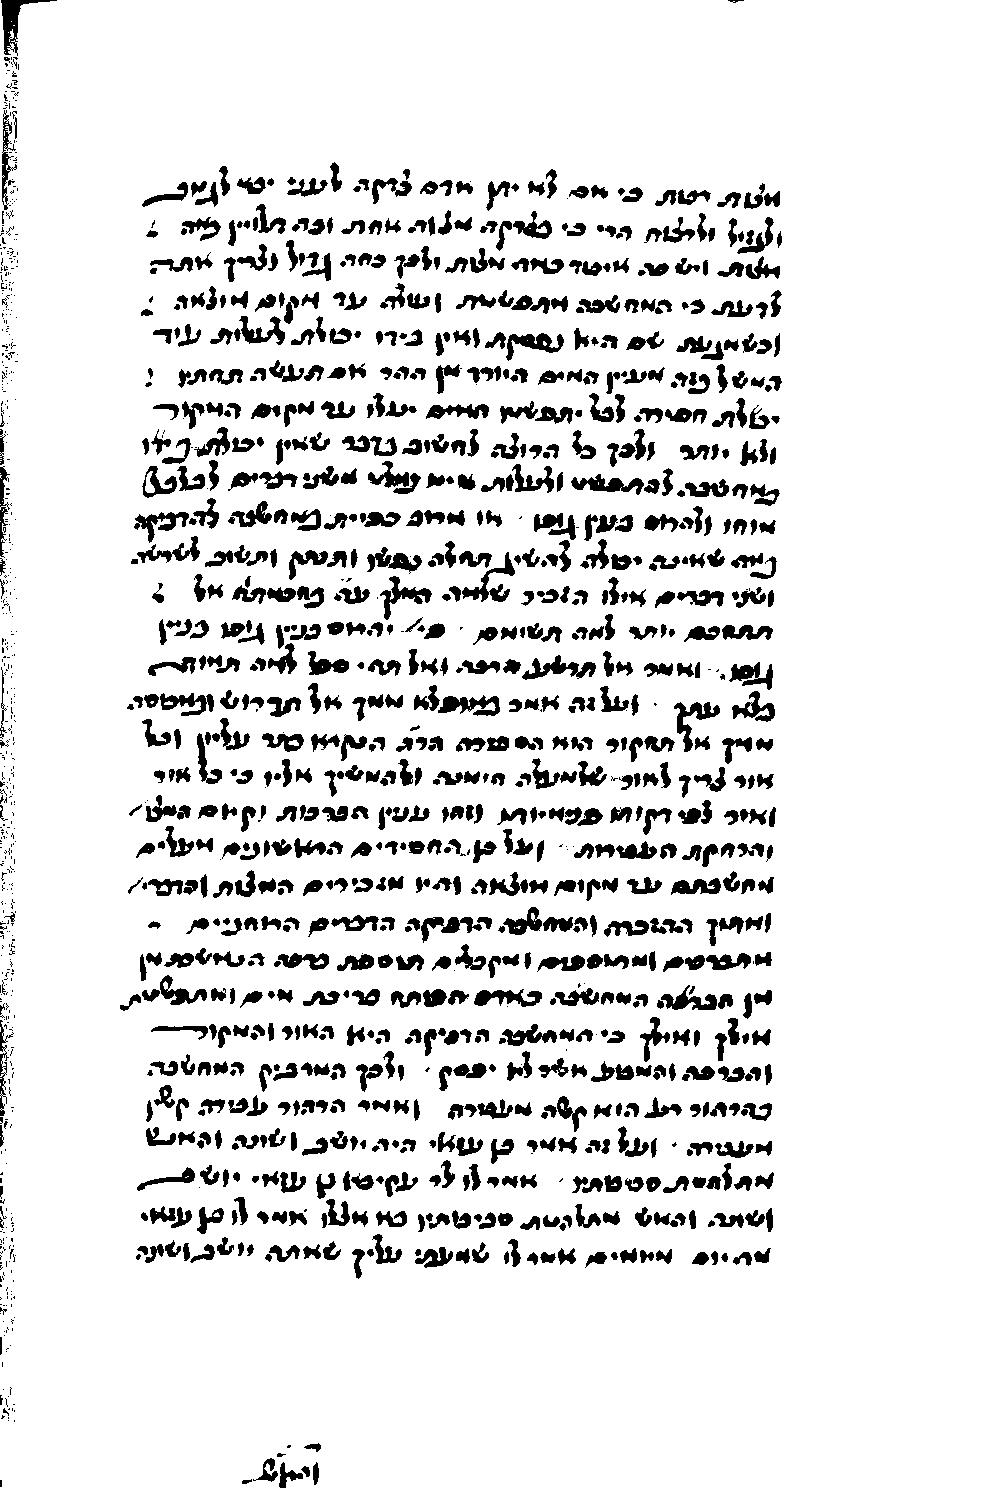 מצות רבות כי אם לא יתן אדם צדקה לעני יבא לגנוב
ולגזול ולרצוח הרי כי בצדקה מצוה אחת ובה תלויין כמה
מצות ויש בה איסור כמה מצות ולכך כחה גדול וצריך אתה
לדעת כי המחשבה מתפשטת ועולה עד מקום מוצאה
וכשמגעת שם היא נפסקת ואין בידו יכולת לעלות עוד
המשל בזה מעיין המים היורד מן ההר אם תעשה תחתיו
בריכה לבל יתפשטו המים יעלו עד מקום המקור
ולא יותר ולכך כל הרוצה לחשוב בדבר שאין יכולת בידו
במחשבה להתפשט ולעלות אינו נמלט משני דברים לבלבל
מוחו ולהרוס בנין גופו או מרוב כפיית המחשבה להדביקה
במה שאינה יכולה להשיג תעלה נפשו ותנתק ותשוב לשרשה
ושני דברים אילו הזכיר שלמה המלך ע״ה בחכמתו אל
תתחכם יותר למה תשומם פי׳ יהרוס בנין גופו בנין
גופו ואמר אל תרשע הרבה ואל תהי סכל למה תמות
בלא עתך ועל זה אמר במופלא ממך אל תדרוש ובמכוסה
ממך אל תחקור הוא הספירה הדקה הנקרא כתר עליון וכל
אור צריך לאור שלמעלה הימנה ולהמשיך אליו כי כל אור
ואור לפי דקותו פנימיותו וזהו ענין הברכות וקיום המצו׳
והרחקת העבירות ועל כן החסידים הראשונים מעלים
מחשבתם עד מקום מוצאה והיו מזכירים המצות והדברי׳
ומתוך ההזכרה והמחשבה הדבקה הדברים הרוחניים
מתברכים ומתוספים ומקבלים תוספת ברכה הנאצלת מן
מן הברכה המחשבה כאדם הפותח בריכת מים ומתפשטת
אילך ואילך כי המחשבה הדבקה היא האור והמקור
והברכה והמבוע אשר לא יפסק ולכך המדביק המחשבה
בהרהור רע הוא קשה מעבירה ואמר הרהור עבירה קשין
מעבירה ועל זה אמר בן עזאי היה יושב ושונה והאש
מתלהטת סביבותיו אמרו לו לר׳ עקיבא בן עזאי יושב
ושונה והאש מתלהטת סביבותיו בא אצלו אמר לו בן עזאי
מה יום מיומים אמר לו שמעתי עליך שאתה יושב ושונה
והאש